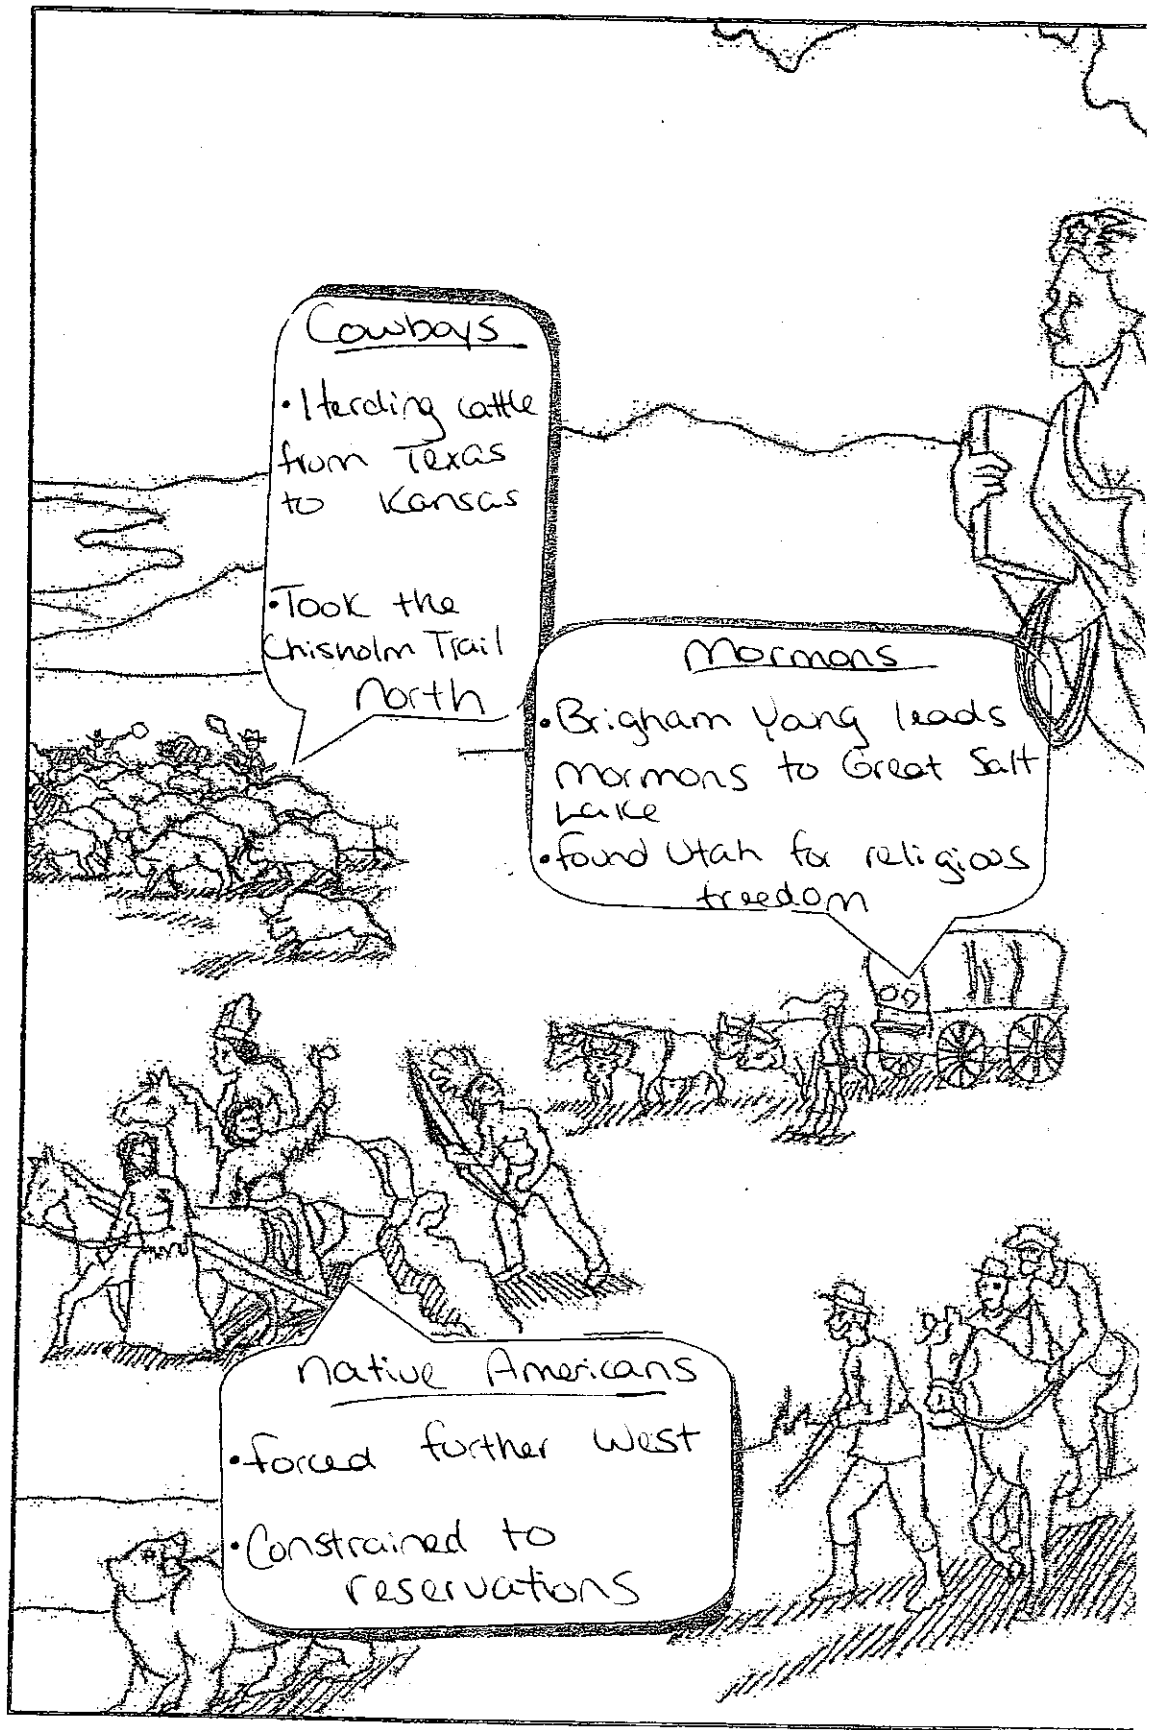 Cowboys
• Herding cattle
from Texas
to Kansas
• Took the
Chisholm Trail
North
Mormons
• Brigham Yang leads
Mormons to Great Salt
Lake
• found Utah for religious
freedom
Native Americans
• forced further West
• Constrained to
reservations